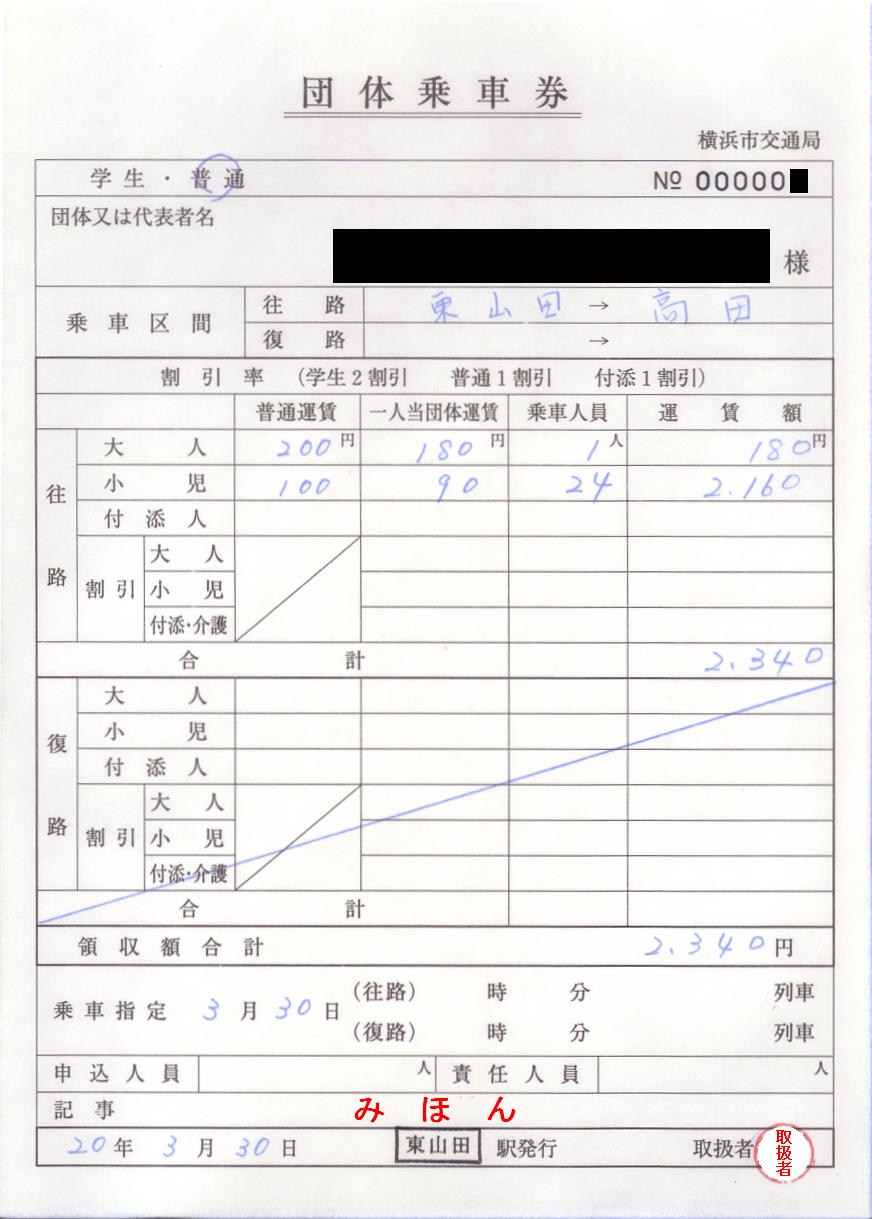 団体乗車券
横浜市交通局
学生・普通 № 00000
団体又は代表者名
様
乗車区間 往路 東山田 → 高田
復路 →
割引率 (学生2割引 普通1割引 付添1割引)
普通運賃 一人当団体運賃 乗車人員 運賃額
往路 大人 200円 180円 1人 180円
小児 100 90 24 2.160
付添人
割引 大人
小児
付添・介護
合計 2.340
復路 大人
小児
付添人
割引 大人
小児
付添・介護
合計
領収額合計 2.340円
乗車指定 3月30日 (往路) 時 分 列車
(復路) 時 分 列車
申込人員 人 責任人員 人
記事 みほん
20年 3月 30日 東山田 駅発行 取扱者 取扱者